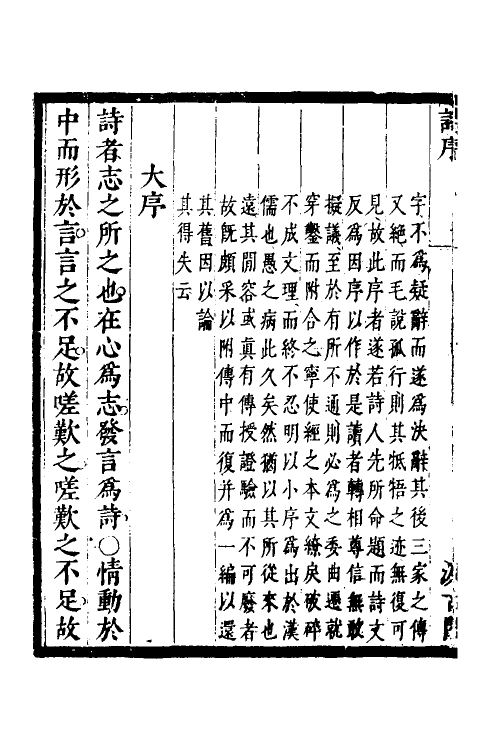 詩序
字不爲疑辭而遂爲決辭其後三家之傳
又絶而毛說孤行則其牴牾之迹無復可
見故此序者遂若詩人先所命題而詩文
反爲因序以作於是讀者轉相尊信無敢
擬議至於有所不通則必爲之委曲遷就
穿鑿而附合之寧使經之本文繚戾破碎
不成文理而終不忍明以小序爲出於漢
儒也愚之病此久矣然猶以其所從來也
遠其閒容或真有傳授證驗而不可廢者
故旣頗采以附傳中而復并爲一編以還
其舊因以論
其得失云
大序
詩者志之所之也在心爲志發言爲詩○情動於
中而形於言言之不足故嗟歎之嗟歎之不足故